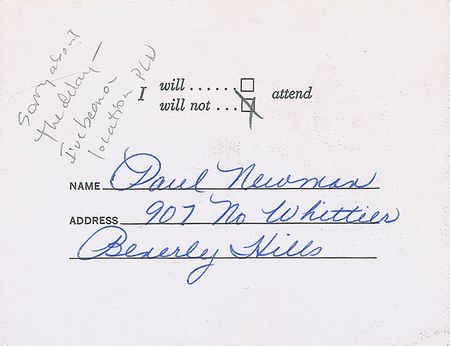 Sorry about
the delay —
I've been on
location PLN
I will ......
will not ... attend
NAME Paul Newman
ADDRESS 907 No Whittier
Beverly Hills